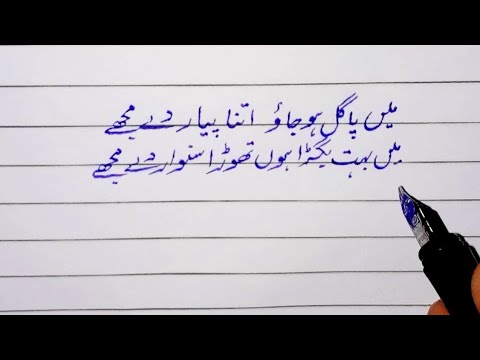 میں پاگل ہو جاؤ اتنا پیار دے مجھے
میں بہت بگڑا ہوں تھوڑا سنوار دے مجھے